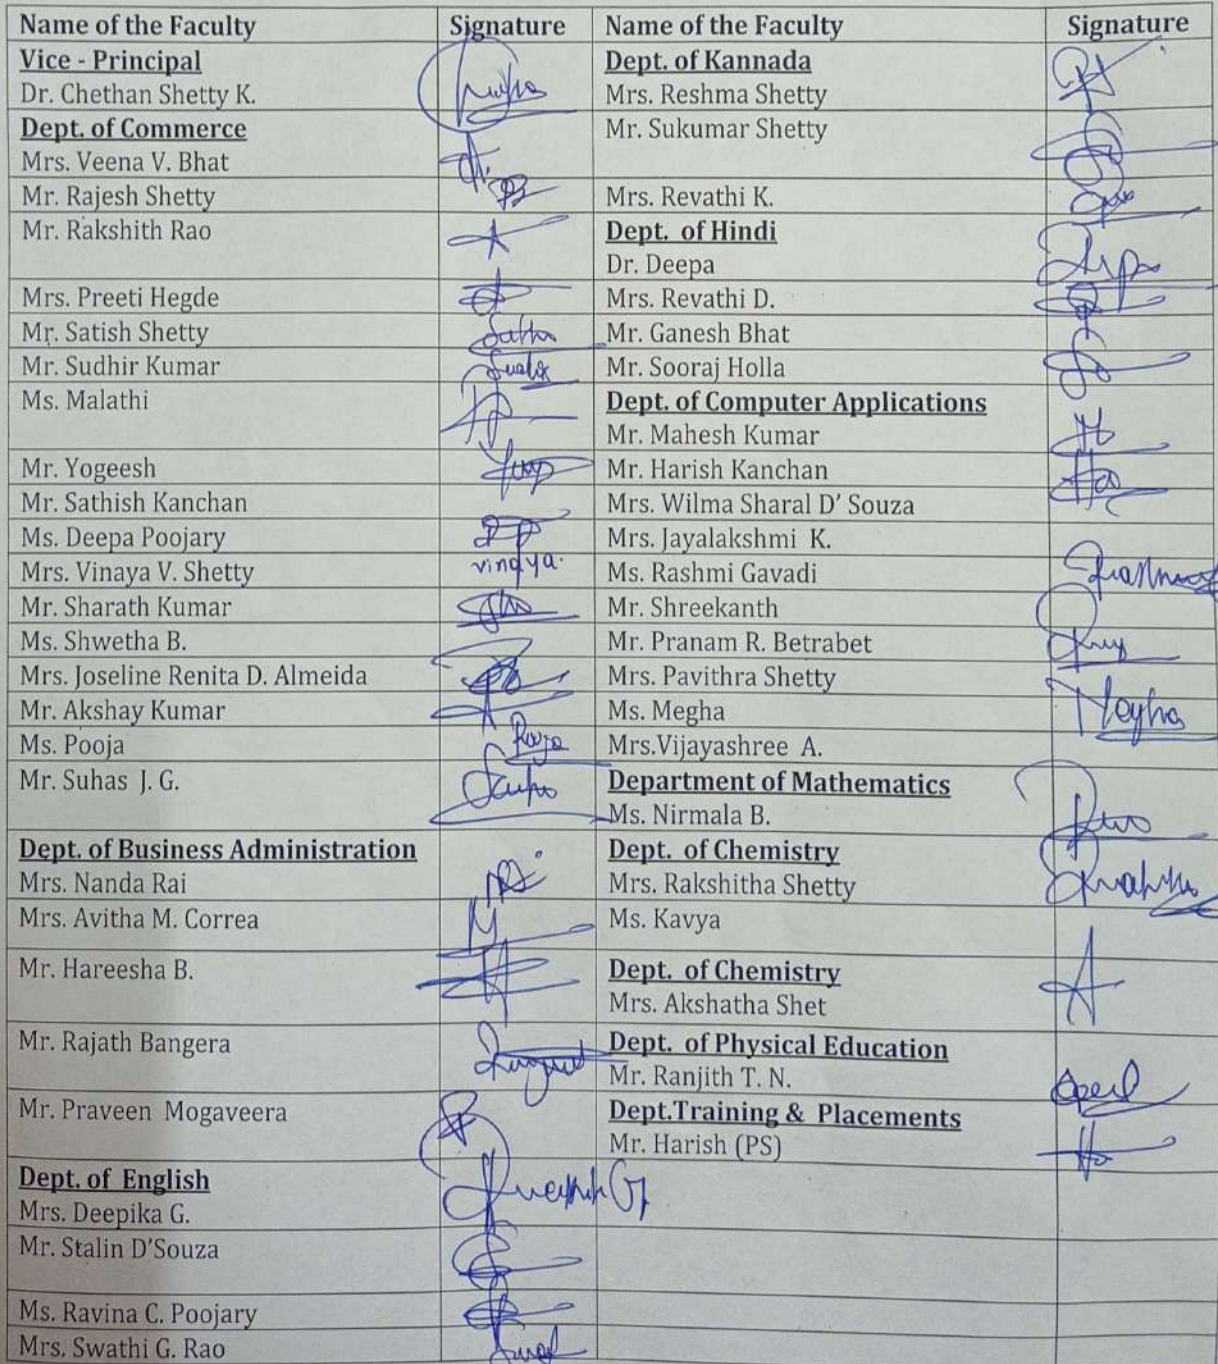 Name of the Faculty Signature Name of the Faculty Signature
Vice - Principal
Dr. Chethan Shetty K.
Dept. of Kannada
Mrs. Reshma Shetty
Dept. of Commerce
Mrs. Veena V. Bhat
Mr. Sukumar Shetty
Mr. Rajesh Shetty
Mrs. Revathi K.
Mr. Rakshith Rao
Dept. of Hindi
Dr. Deepa
Mrs. Preeti Hegde
Mrs. Revathi D.
Mr. Satish Shetty
Mr. Ganesh Bhat
Mr. Sudhir Kumar
Mr. Sooraj Holla
Ms. Malathi
Dept. of Computer Applications
Mr. Mahesh Kumar
Mr. Yogeesh
Mr. Harish Kanchan
Mr. Sathish Kanchan
Mrs. Wilma Sharal D' Souza
Ms. Deepa Poojary
Mrs. Jayalakshmi K.
Mrs. Vinaya V. Shetty vinaya.
Ms. Rashmi Gavadi
Mr. Sharath Kumar
Mr. Shreekanth
Ms. Shwetha B.
Mr. Pranam R. Betrabet
Mrs. Joseline Renita D. Almeida
Mrs. Pavithra Shetty
Mr. Akshay Kumar
Ms. Megha Megha
Ms. Pooja Pooja
Mrs.Vijayashree A.
Mr. Suhas J. G.
Department of Mathematics
Ms. Nirmala B.
Dept. of Business Administration
Mrs. Nanda Rai
Dept. of Chemistry
Mrs. Rakshitha Shetty
Mrs. Avitha M. Correa
Ms. Kavya
Mr. Hareesha B.
Dept. of Chemistry
Mrs. Akshatha Shet
Mr. Rajath Bangera
Dept. of Physical Education
Mr. Ranjith T. N.
Mr. Praveen Mogaveera
Dept.Training & Placements
Mr. Harish (PS)
Dept. of English
Mrs. Deepika G.
Mr. Stalin D'Souza
Ms. Ravina C. Poojary
Mrs. Swathi G. Rao